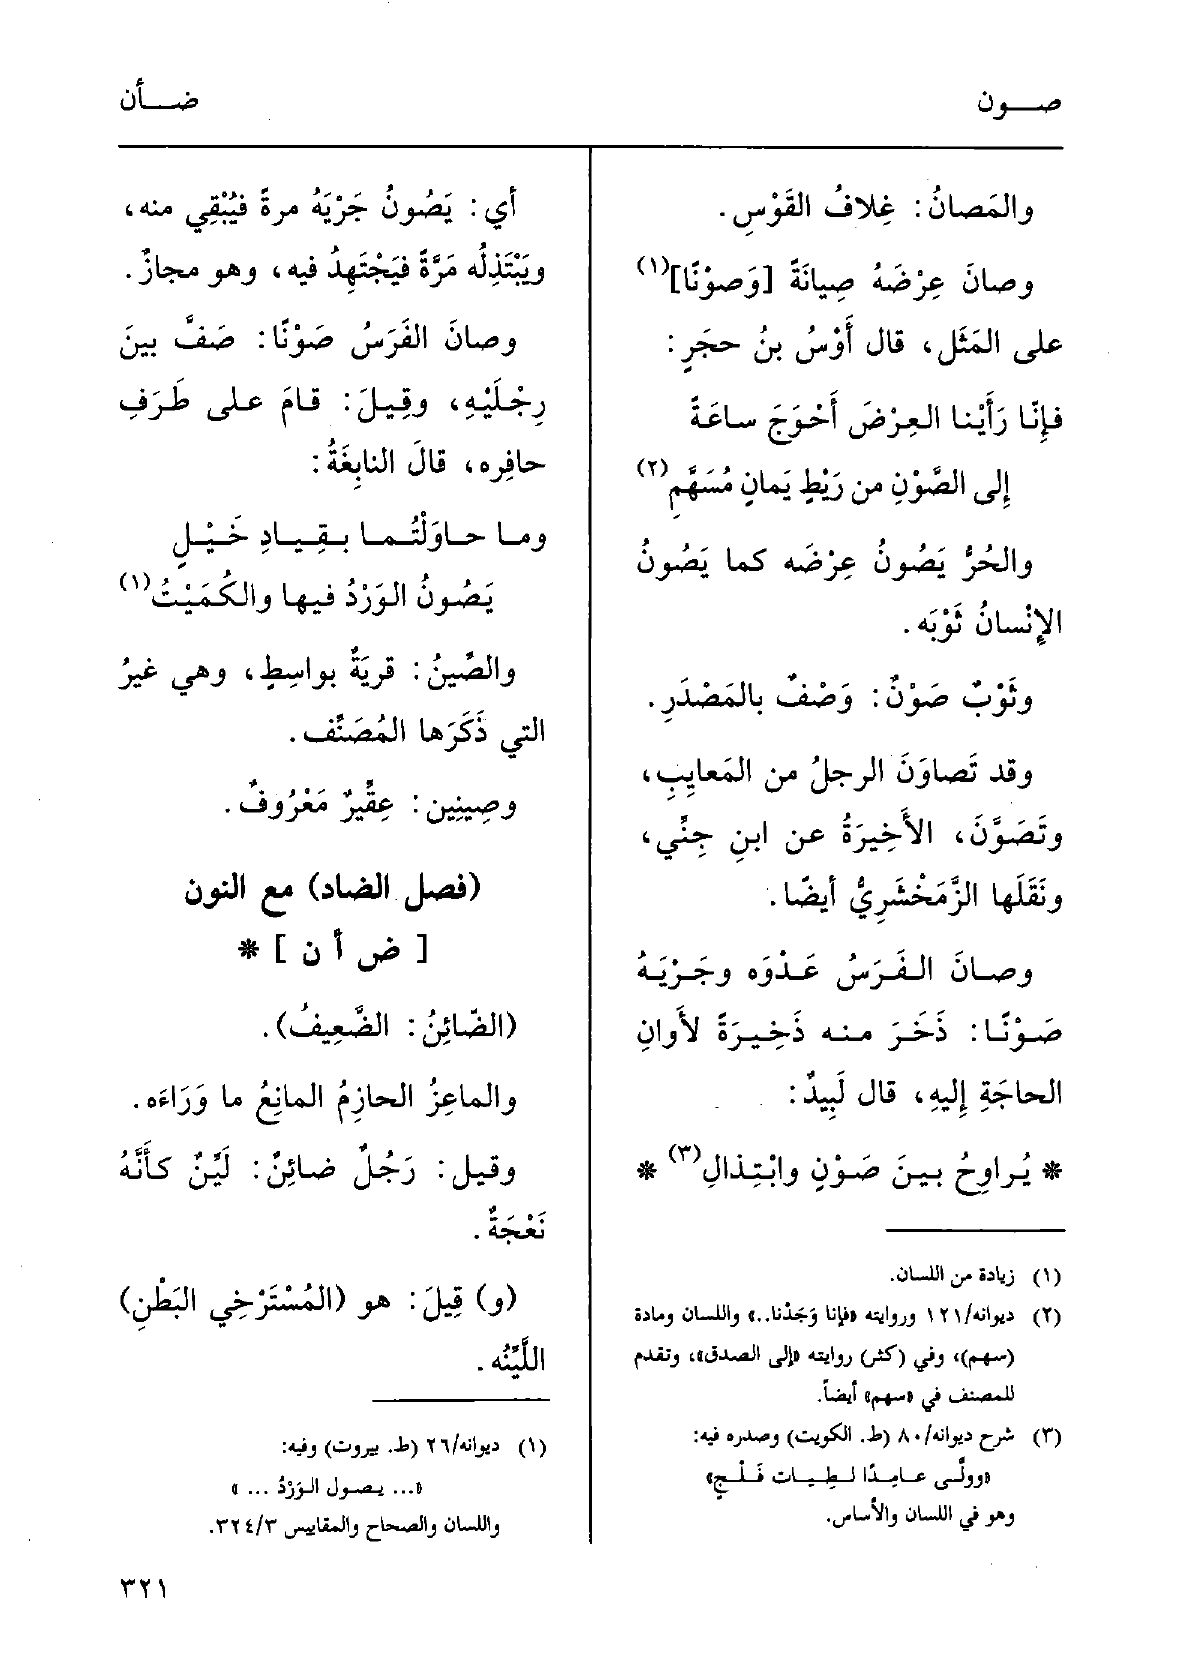 صون
ضأن
والمَصانُ: غِلافُ القَوْسِ.
وصانَ عِرْضَهُ صِيانَةً [وَصوْنًا]⁽١⁾
على المَثَل، قال أَوْسُ بنُ حجَرٍ:
فإِنّا رَأَيْنا العِرْضَ أَحْوَجَ ساعَةً
إلى الصَّوْنِ من رَيْطٍ يَمانٍ مُسَهَّمِ⁽٢⁾
والحُرُّ يَصُونُ عِرْضَه كما يَصُونُ
الإِنْسانُ ثَوْبَه.
وثَوْبٌ صَوْنٌ: وَصْفٌ بالمَصْدَرِ.
وقد تَصاوَنَ الرجلُ من المَعايِبِ،
وتَصَوَّنَ، الأَخِيرَةُ عن ابنِ جِنِّي،
ونَقَلَها الزَّمَخْشَرِيُّ أيضًا.
وصانَ الفَرَسُ عَدْوَه وجَرْيَهُ
صَوْنًا: ذَخَرَ منه ذَخِيرَةً لأَوانِ
الحاجَةِ إِليهِ، قال لَبِيدٌ:
* يُراوِحُ بينَ صَوْنٍ وابْتِذالِ⁽٣⁾ *
(١) زيادة من اللسان.
(٢) ديوانه/١٢١ وروايته «فإنا وَجَدْنا..» واللسان ومادة
(سهم)، وفي (كثر) روايته «إلى الصدق»، وتقدم
للمصنف في «سهم» أيضاً.
(٣) شرح ديوانه/٨٠ (ط. الكويت) وصدره فيه:
«وولَّى عامِدًا لطِيات فَلْجٍ»
وهو في اللسان والأساس.
أي: يَصُونُ جَرْيَهُ مرةً فيُبْقِي منه،
ويَبْتَذِلُه مَرَّةً فيَجْتَهِدُ فيه، وهو مجازٌ.
وصانَ الفَرَسُ صَوْنًا: صَفَّ بينَ
رِجْلَيْهِ، وقِيلَ: قامَ على طَرَفِ
حافِره، قالَ النابِغَةُ:
وما حاوَلْتُما بقِيادِ خَيْلٍ
يَصُونُ الوَرْدُ فيها والكُمَيْتُ⁽١⁾
والصِّينُ: قريَةٌ بواسِطٍ، وهي غيرُ
التي ذَكَرَها المُصَنِّف.
وصِينِين: عِقِّيرٌ مَعْرُوفٌ.
(فصل الضاد) مع النون
[ ض أ ن ] *
(الضّائِنُ: الضَّعِيفُ).
والماعِزُ الحازِمُ المانِعُ ما وَرَاءَه.
وقيل: رَجُلٌ ضائِنٌ: لَيِّنٌ كأَنَّهُ
نَعْجَةٌ.
(و) قِيلَ: هو (المُسْتَرْخِي البَطْنِ)
اللَّيِّنُه.
(١) ديوانه/٢٦ (ط. بيروت) وفيه:
«... يصول الوَرْدُ ... »
واللسان والصحاح والمقاييس ٣٢٤/٣.
٣٢١